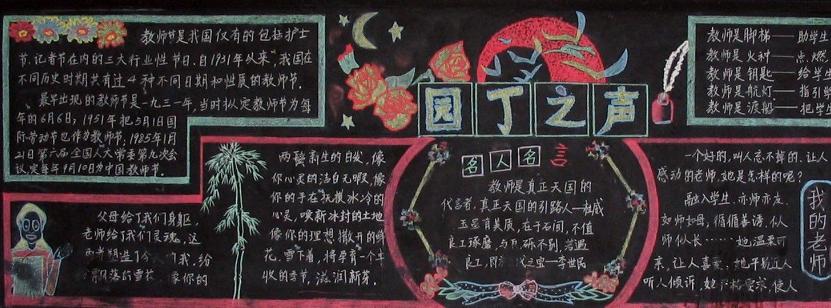 教师节是我国仅有的包括护士
节、记者节在内的三大行业性节日。自1931年以来,我国在
不同历史时期共有过4种不同日期和性质的教师节。
最早出现的教师节是一九三一年,当时拟定教师节为每
年的6月6日;1951年把5月1日国
际劳动节也作为教师节;1985年1月
21日第六届全国人大常委第九次会
议定每年9月10日为中国教师节。
父母给了我们身躯,
老师给了我们灵魂,这
两鬓新生的白发,像
你心灵的洁白无暇,像
你的手在抚摸冰冷的
心灵,唤新冰封的土地
像你的理想撒开的鲜
花,雪下着,将孕育一个丰
收的季节,滋润新芽。
园丁之声
名人名言
教师是真正天国的
代言者,真正天国的引路人
玉虽有美质,在于石间,不值
良工琢磨,与瓦砾不别,若遇
良工,即为
李世民
教师是脚梯——助学生
教师是火种——点燃
教师是钥匙——给学生
教师是航灯——指引学
教师是渡船——把学
一个好的,叫人忘不掉的,让人
感动的老师,她是怎样的呢?
融入学生,亦师亦友,
如师如母,循循善诱,似人
师似长……她温柔可
亲,让人喜爱,她平易近人
听人倾诉,她严格要求,使人
我的老师